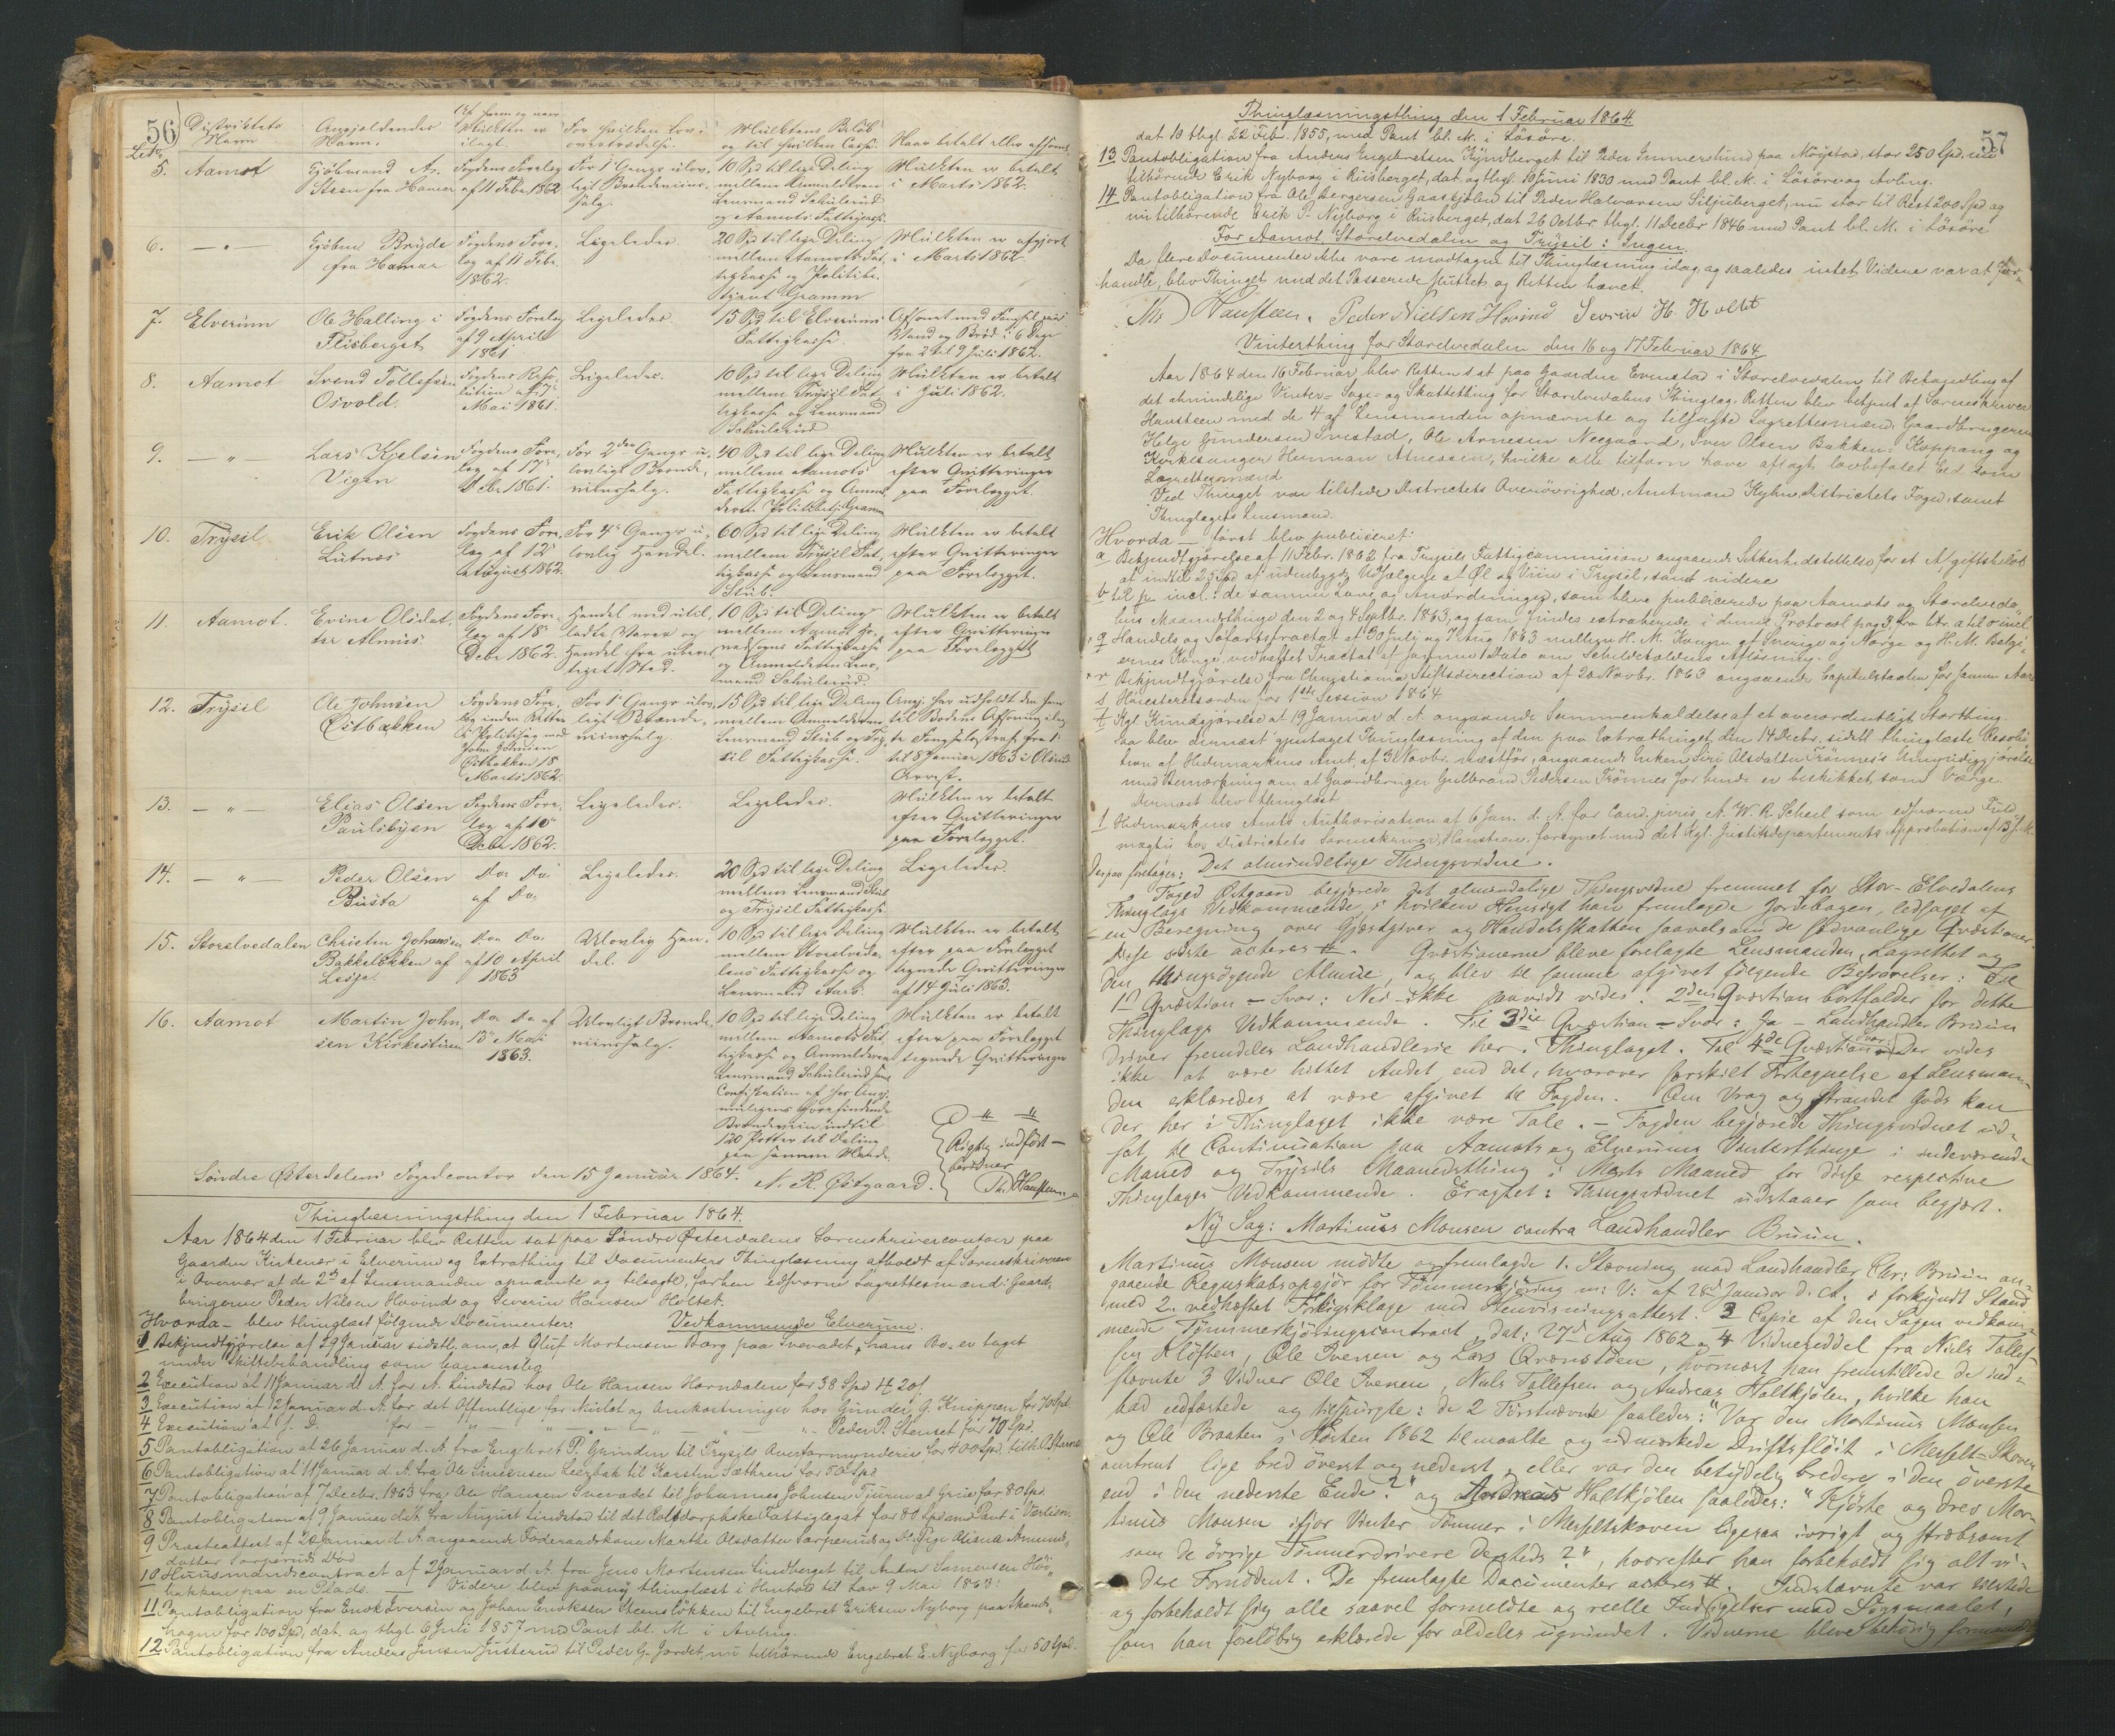 56
Distriktets Navn
Angjældendes Navn.
Af hvem og naar Mulkten er ilagt.
For hvilken Lovovertrædelse.
Mulktens Beløb og til hvilken Casse.
Naar betalt eller afsonet
5. Aamot
Kjøbmand A. Steen fra Hamar
Fogdens Forelæg af 11 Febr 1862
For 1ste Gangs ulovligt Brændeviinssalg.
10 Spd til lige Deling mellem Anmelderen Lensmand Schulerud og Aamots Fattigkasse.
Mulkten er betalt i Marts 1862.
6. — " —
Kjøbm Bryde fra Hamar
Fogdens Forelæg af 11 Febr. 1862.
Ligeledes.
20 Spd til lige Deling mellem Aamots Fattigkasse og Politibetjent Gramm
Mulkten er afgjort i Marts 1862.
7. Elverum
Ole Halling i Flisberget
Fogdens Forelæg af 9 April 1861
Ligeledes
15 Spd til Elverums Fattigkasse.
Afsonet med Fængsel paa Vand og Brød i 6 Dage fra 2 til 9 Juli 1862.
8. Aamot
Svend Tollefsen Osvold.
Fogdens Resolution af Mai 1861.
Ligeledes.
10 Spd til lige Deling mellem Trysil Fattigkasse og Lensmand Schulerud
Mulkten er betalt i Juli 1862.
9. — " —
Lars Kjelsen Vigen
Fogdens Forelæg af 17 Debr 1861.
For 2den Gangs ulovligt Brændeviinssalg.
40 Spd til lige Deling mellem Aamots Fattigkasse og Anmelderen Politibetj. Gramm
Mulkten er betalt efter Qvitteringer paa Forelægget.
10. Trysil
Erik Olsen Lutnæs
Fogdens Forelæg af 12 August 1862.
For 4de Gangs ulovlig Handel.
60 Spd til lige Deling mellem Trysil Fattigkasse og Lensmand Stub.
Mulkten er betalt efter Qvitteringer paa Forelægget.
11. Aamot.
Erine Olsdatter Alme
Fogdens Forelæg af 18 Debr 1862.
Handel med utilladte Varer og Handel fra uberettiget Sted.
10 Spd til Deling mellem Aamot Fattigkasse og Anmelderen Lensmand Schulerud.
Mulkten er betalt efter Qvitteringer paa Forelægget
12. Trysil
Ole Johnsen Østbækken
Fogdens Forelæg inden Retten i Politisag mod John Johnsen Østbækken 18 Marts 1862.
For 1ste Gangs ulovligt Brændeviinssalg.
15 Spd til lige Deling mellem Anmelderen Lensmand Stub og Trysil Fattigkasse.
Angj. har udholdt den ham til Bødens Afsoning ilagte Fængselsstraf fra 1 til 8 Januar 1863 i Arrest.
13. — " —
Elias Olsen Paulsbyen
Fogdens Forelæg af 10 Debr 1862.
Ligeledes.
Ligeledes.
Mulkten er betalt efter Qvitteringer paa Forelægget.
14. — " —
Peder Olsen Busta
Do Do af Do
Ligeledes.
20 Spd til lige Deling mellem Lensmand Stub og Trysil Fattigkasse.
Ligeledes.
15. Storelvedalen
Christen Johansen Bakkeløkken af Lesje.
Do Do af 10 April 1863
Ulovlig Handel.
10 Spd til lige Deling mellem Storelvedalens Fattigkasse og Lensmand Aars.
Mulkten er betalt efter paa Forelægget tegnede Qvitteringer af 14 Juli 1863.
16. Aamot
Martin Johnsen Kirkestuen
Do Do af 13 Mai 1863.
Ulovligt Brændeviinssalg.
10 Spd til lige Deling mellem Aamots Fattigkasse og Anmelderen Lensmand Schulerud samt Confiskation af hos Angj. forefindende Brændeviin indtil 120 Potter til Deling paa samme Maade.
Mulkten er betalt efter paa Forelægget tegnede Qvitteringer
Rigtig indført bevidner
Th. Hansteen
Søndre Østerdalens Fogedcontor den 15 Januar 1864. N. R. Østgaard.
Thinglæsningsthing den 1 Februar 1864.
Aar 1864 den 1 Februar blev Retten sat paa Søndre Østerdalens Sorenskrivercontoir paa
Gaarden Kirkenær i Elverum og Extrathing til Documenters Thinglæsning afholdt af Sorenskriveren
i Overvær af de 2de af Lensmanden opnævnte og tilsagte, forhen edsvorne Lagrettesmænd: Gaard-
brugerne Peder Nilsen Hovind og Severin Hansen Holtet.
Hvorda — blev thinglæst følgende Documenter: Vedkommende Elverum.
1 Bekjendtgjørelse af 29 Januar sidstl. om, at Oluf Mortensen Borg paa Svenadet, hans Bo er taget
under Skiftebehandling som
2 Execution af 11 Januar d. A. for A. Lindstad hos Ole Hansen Horndalen for 38 Spd 4 20 f.
3 Execution af 12 Januar d. A. for det Offentlige for Mulct og Omkostninger hos Gunder G. Knippen for 70 Spd.
4 Execution af s. D. for — " — Peder P. Stenset for 70 Spd.
5 Pantobligation af 26 Januar d. A. fra Engebret P. Grinden til Trysils Overformynderie for 400 Spd.
6 Pantobligation af 11 Januar d. A. fra Ole Simensen til Karsten Sæthren for 50 Spd
7 Pantobligation af 7 Decbr. 1863 fra Ole Hansen Svenadet til Johannes Johnsen af Grue for 80 Spd.
8 Pantobligation af 9 Januar d. A. fra August Lindstad til det Rolsdorphske Fattiglegat for 80 Spd med Pant i
9 Præsteattest af 20 Januar d. A. angaaende Føderaadskone Marthe Olsdatter og Pige Oliana Amunds-
datter Sorperuds Død
10 Huusmandscontract af 2 Januar d. A. fra Jens Mortensen Lindberget til Anders Simensen Høi-
bakken paa en Plads. — Videre blev paany thinglæst i Henhold til Lov 9 Mai 1863:
11 Pantobligation fra Enok Eversen og Johan Enoksen Steensløkken til Engebret Eriksen Nyborg paa
for 100 Spd, dat. og thgl. 6 Juli 1857 med Pant bl. M. i Avling.
12 Pantobligation fra Anders Jensen Justerud til Peder G. Jordet, nu tilhørende Engebret E. Nyborg for 50 Spd.
57
Thinglæsningsthing den 1 Februar 1864.
dat 10 thgl. 22 Feb. 1855, med Pant bl. M. i Løsøre.
13 Pantobligation fra Anders Engebretsen Kyndberget til Peder Emmerstund paa Nøystad, stor 250 Spd, nu
tilhørende Erik Nyborg i Riisberget, dat og thgl. 10 Juni 1830 med Pant bl. M. i Løsøre og Avling.
14 Pantobligation fra Ole Bergersen Gaaskjølen til Peder Halvorsen Siljuberget, nu stor til Rest 200 Spd og
nu tilhørende Erik P. Nyborg i Riisberget, dat 26 Octbr thgl. 11 Decbr 1846 med Pant bl. M. i Løsøre
For Aamot, Storelvedalen og Trysil: Ingen.
Da flere Documenter ikke vare modtagne til Thinglæsning idag, og saaledes intet Videre var at for-
handle, blev Thinget med det Passerede sluttet og Retten hævet.
Th. Hansteen. Peder Nielsen Hovind Sevrin H. Holtet
Vinterthing for Storelvedalen den 16 og 17 Februar 1864.
Aar 1864 den 16 Februar blev Retten sat paa Gaarden Evenstad i Storelvedalen til Behandling af
det almindelige Vinter- Sage- og Skattething for Storelvedalens Thinglag. Retten blev betjent af Sorenskriver
Hansteen med de 4 af Lensmanden opnævnte og tilsagte Lagrettesmænd, Gaardbrugerne
Helge Gundersen Imstad, Ole Arnesen Neegaard, Iver Olsen Bakken, Koppang og
Kirkesanger Herman Atnesen, hvilke alle tilforn have aflagt lovbefalet Eed som
Lagrettesmænd
Ved Thinget var tilstede Districtets Overøvrighed, Amtmand Kyhn, Districtets Foged, samt
Thinglagets Lensmand.
Hvorda — først blev publiceret:
a Bekjendtgjørelse af 11 Febr. 1862 fra Trysils Fattigcommission angaaende Sikkerhedstillelse for et Afgiftsbeløb
af indtil 25 Spd af udenbygds Udsælgere af Øl og Viin i Trysil, samt videre
b til p incl.: de samme Love og Anordninger, som bleve publicerede paa Aamots og Storelveda-
lens Maanedsthinge den 2 og 4 Septbr. 1863, og som findes extraherede i denne Protocol pag 3 fra litr. a til o incl.
q Handels og Søfartstractat af 30 Juli og 7 Aug 1863 mellem H. M. Kongen af Sverige og Norge og H. M. Belgi-
ernes Konge, vedhæftet Tractat af samme Dato om Scheldetoldens Afløsning.
r Bekjendtgjørelse fra Christiania Stiftsdirection af 20 Novbr. 1863 angaaende Capitelstaxten for samme Aar
s Høiesteretsorden for 1ste Session 1864
t Kgl. Kundgjørelse af 19 Januar d. A. angaaende Sammenkaldelse af et overordentligt Storthing.
saa blev dernæst gjentaget Thinglæsning af den paa Extrathinget den 14 Decbr. sidstl thinglæste Resolu-
tion af Hedemarkens Amt, af 3 Novbr. næstfør, angaaende Enken Siri Olsdatter Trønnes's Umyndiggjørelse
med Bemærkning om at Gaardbruger Gulbrand Pedersen Trønnes for hende er beskikket som Værge.
Dernæst blev thinglæst
1 Hedemarkens Amts Authorisation af 6 Jan. d. A. for Cand. juris A. W. R. Scheel som edsvoren Fuld-
mægtig hos Districtets Sorenskriver, Hansteen, forsynet med det Kgl. Justitsdepartements Approbation af 13 s. M.
Derpaa foretages: Det almindelige Thingsvidne.
Foged Østgaard begjærede det almindelige Thingsvidne fremmet for Stor-Elvedalens
Thinglags Vedkommende, i hvilken Hensigt han fremlagde Jordebogen, ledsaget af
en Beregning over Gjæstgiver og Handelsskatten saavelsom de sædvanlige Qvæstioner.
Disse sidste acteres #. Qvæstionerne bleve forelagte Lensmanden, Lagrettet og
den thingsøgende Almue, og blev til samme afgivet følgende Besvarelser: Til
1ste Qvæstion — Svar: Nei - ikke saavidt vides. 2den Qvæstion bortfalder for dette
Thinglags Vedkommende. Til 3die Qvæstion — Svar: Ja — Landhandler Bruun
driver fremdeles Landhandlerie her i Thinglaget. Til 4de Qvæstion Svar: Der vides
ikke at være hittet Andet end det, hvorover særskilt Fortegnelse af Lensman-
den erklæredes at være afgivet til Fogden. Om Vrag og Strandet Gods kan
der her i Thinglaget ikke være Tale. — Fogden begjærede Thingsvidnet ud-
sat til Continuation paa Aamots og Elverums Vinterthinge i indeværende
Maaned og Trysils Maanedsthing i Marts Maaned for disse respective
Thinglages Vedkommende. Eragtet: Thingsvidnet udstaaer som begjært.
Ny Sag: Martinus Monsen contra Landhandler Bruun.
Martinus Monsen mødte og fremlagde 1. Stævning mod Landhandler Chr: Bruun an-
gaaende Regnskabsopgjør for Tømmerkjøring m: V: af 28 Januar d. A. i forkyndt Stand
med 2. vedhæftet Forligsklage med Henvisningsattest. 3 Copie af den Sagen vedkom-
mende Tømmerkjøringscontract, dat: 27 Aug 1862 og 4 Vidneseddel fra Niels Tollef-
sen Kløften, Ole Iversen og Lars Qvænsiden, hvornæst han fremstillede de ind-
stævnte 3 Vidner Ole Iversen, Niels Tollefsen og Andreas Holtkjølen, hvilke han
bad edfæstede og tilspurgte: de 2 Førstnævnte saaledes: "Var den Martinus Monsen
og Ole Braaten i Høsten 1862 tilmaalte og udmærkede Driftsfløit i Messelt-Skoven
omtrent lige bred øverst og nederst, eller var den betydelig bredere i den øverste
end i den nederste Ende?" og Andreas Holtkjølen saaledes: "Kjørte og drev Mar-
tinus Monsen ifjor Vinter Tømmer i Messeltskoven ligesaa ivrigt og stræbsomt
som de øvrige Tømmerdrivere dersteds?", hvorefter han forbeholdt sig alt vi-
dere Fornødent. De fremlagte Documenter acteres #. Indstævnte var tilstede
og forbeholdt sig alle saavel formeldte og reelle Indsigelser mod Søgsmaalet,
som han foreløbig erklærede for aldeles ugrundet. Vidnerne bleve behørig formanede